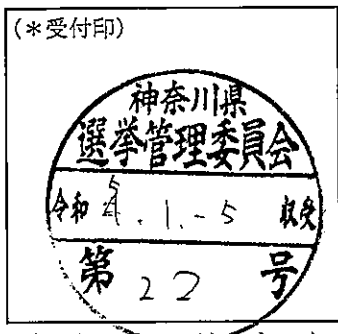 (*受付印)
神奈川県
選挙管理委員会
令和 5.1.-5 収受
第 22 号